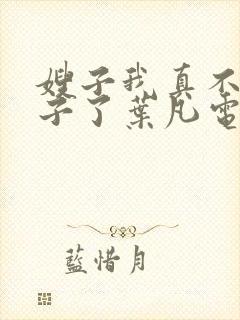 嫂子我真不
子了葉凡電
藍惜月